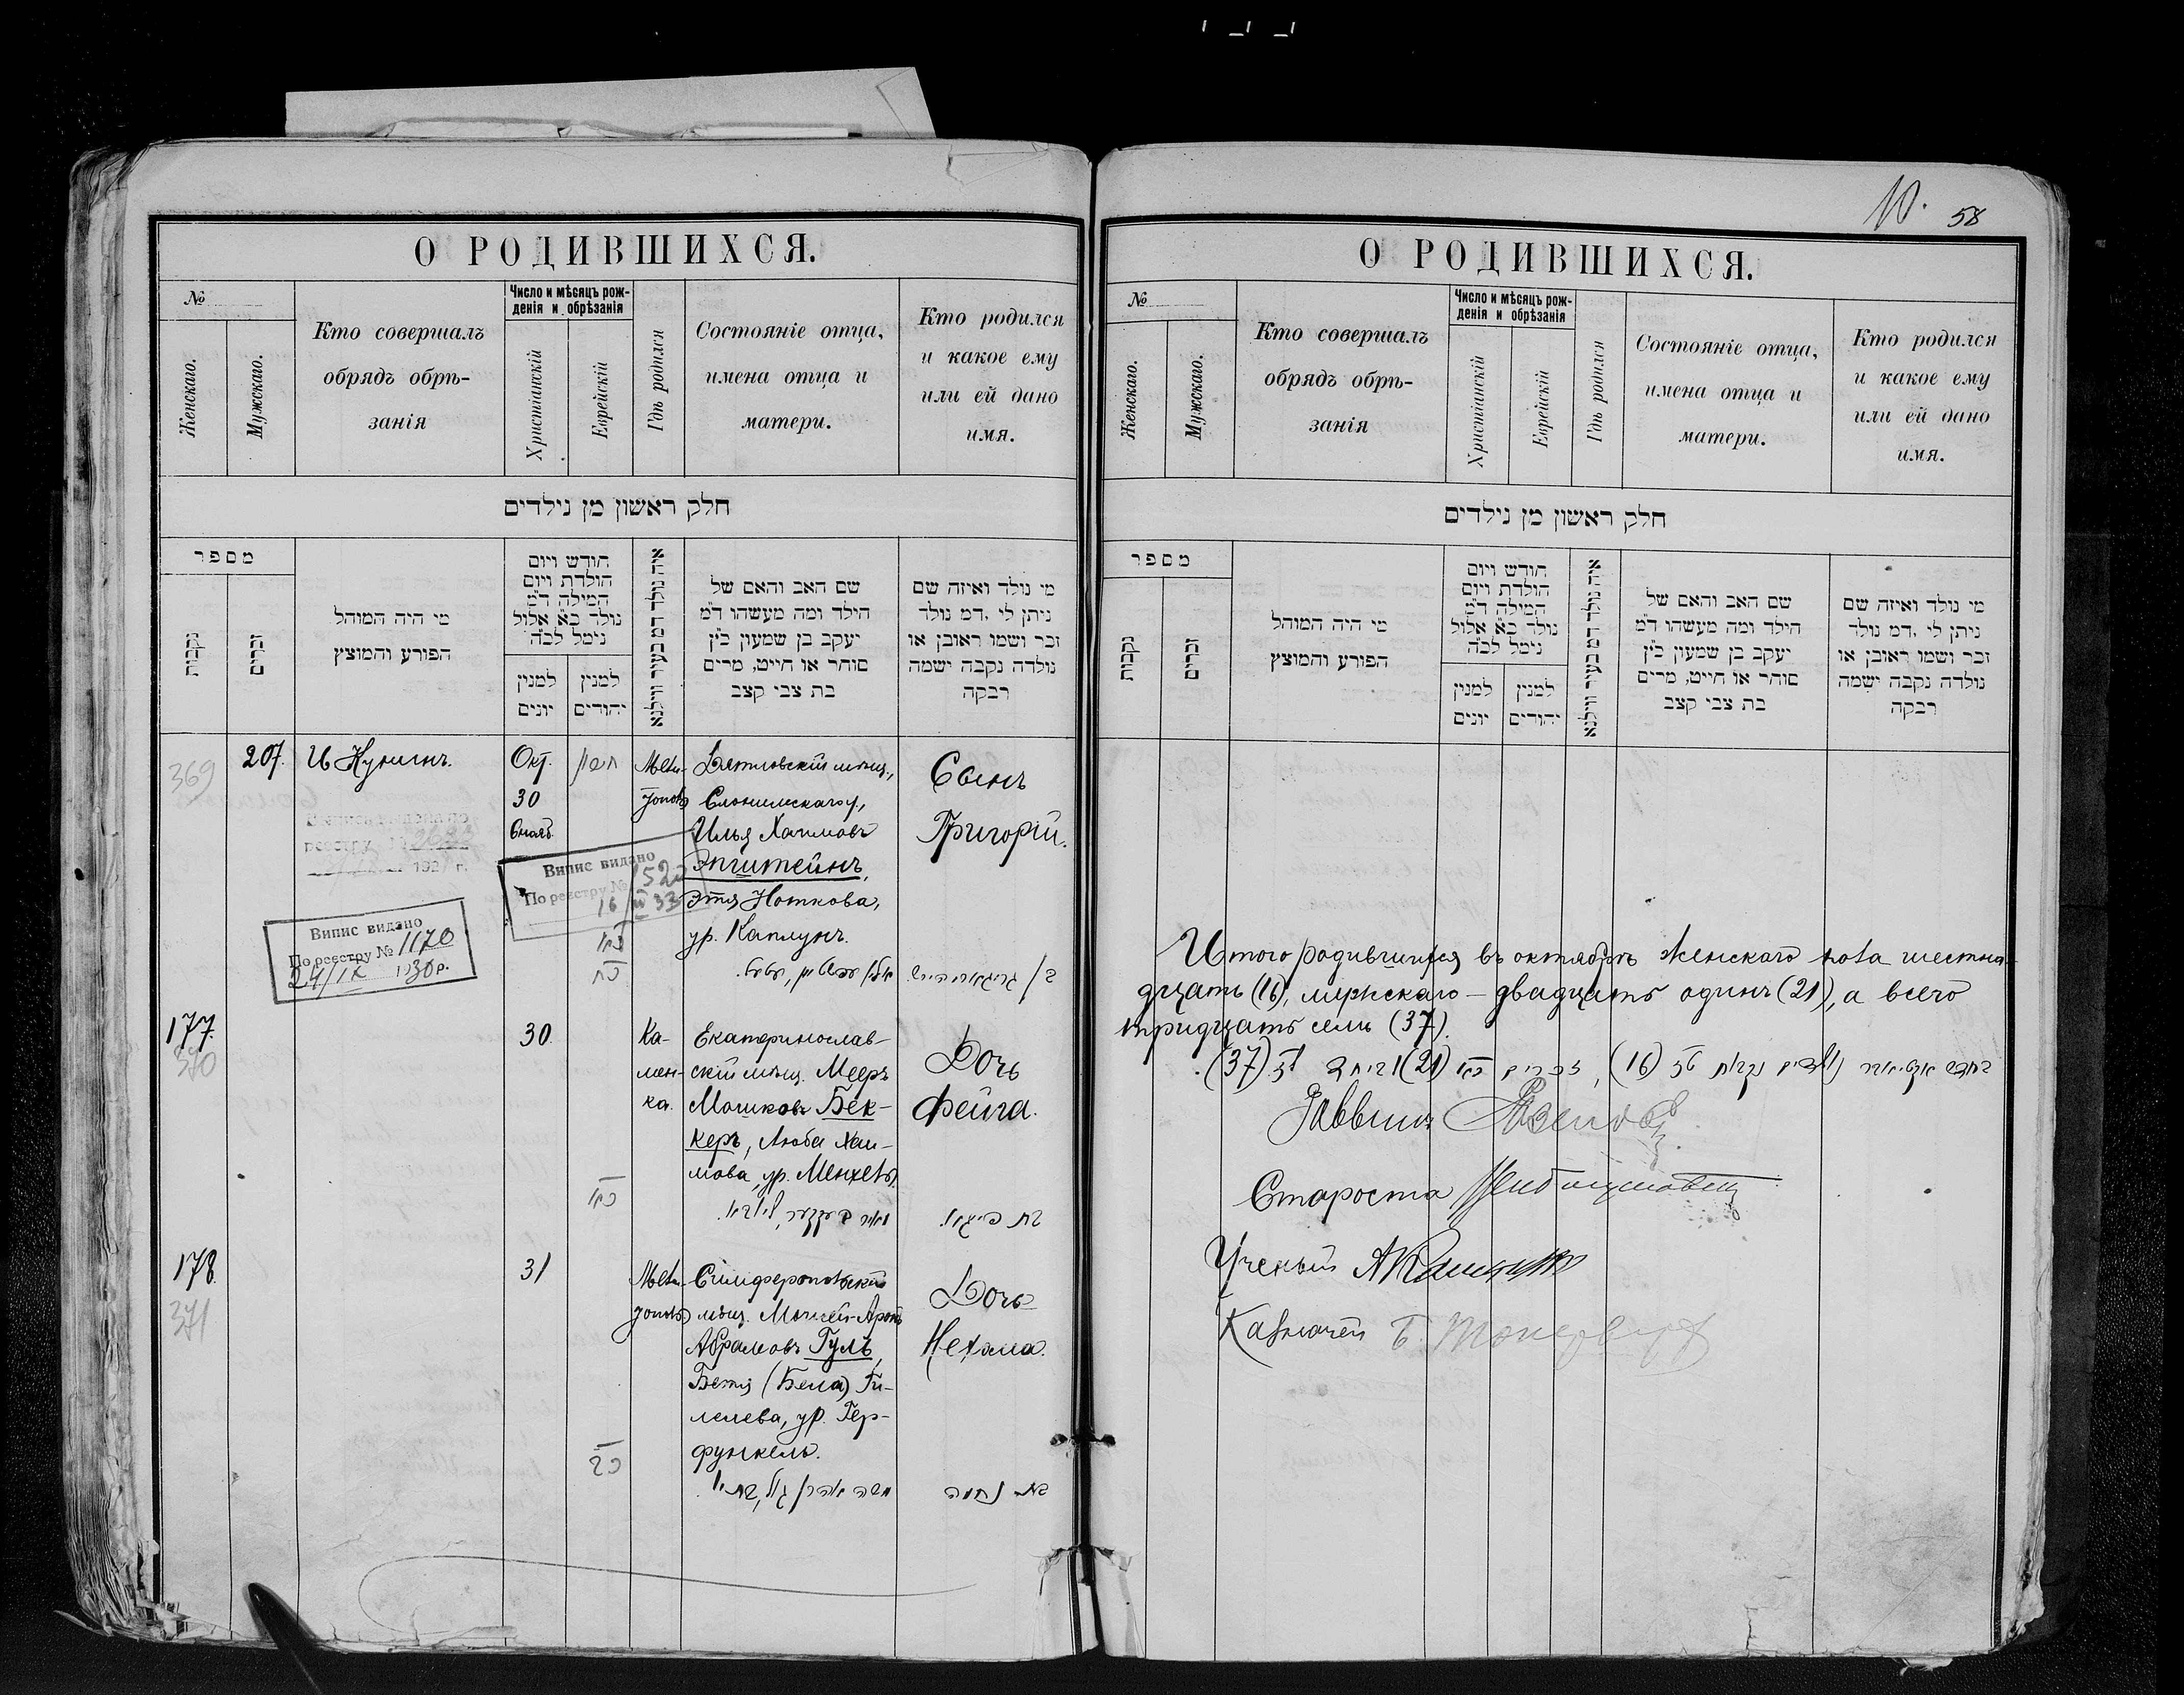 10.
58
О РОДИВШИХСЯ.
№
Женскаго.
Мужскаго.
Кто совершалъ
обрядъ обрѣ-
занія
Число и мѣсяцъ рож-
денія и обрѣзанія
Христіанскій
Еврейскій
Гдѣ родился
Состояніе отца,
имена отца и
матери.
Кто родился
и какое ему
или ей дано
имя.
חלק ראשון מן נילדים
מספר
נקבות
זכרים
מי היה המוהל
הפורע והמוצץ
חודש ויום
הולדת ויום
המילה ד"מ
נולד כ"א אלול
נימל לכ"ה
למנין
יונים
למנין
יהודים
איה נולד דמ בעיר ווילנא
שם האב והאם של
הילד ומה מעשהו ד"מ
יעקב בן שמעון כ"ץ
סוחר או חייט, מרים
בת צבי קצב
מי נולד ואיזה שם
ניתן לי .דמ נולד
זכר ושמו ראובן או
נולדה נקבה ישמה
רבקה
369
207.
И Кунинъ.
Окт.
30
6 нояб.
חשון
כ"ח
Мѣщ.,
Слонимскаго у.,
Илья Хаимовъ
Эпштейнъ,
Этя Ноткова,
ур. Каплунъ.
Сынъ
Григорій.
1927 г.
Випис видано
По реєстру № 1520
16/III 33
Випис видано
По реєстру № 1170
24/IX 1930 р.
177.
370
30.
Ка-
мен-
ка.
Екатеринослав-
скій мѣщ. Мееръ
Мошковъ Бек-
керъ, Люба Хаи-
мова, ур.
Дочь
Фейга.
בת פייגא.
178.
371
31
Симферопольскій
мѣщ. Аронъ
Абрамовъ Гуль,
Бетя (Бела) Ги-
лелева, ур. Гер-
функель.
משה אהרן גול,
Дочь
Нехама.
בת נחמה
О РОДИВШИХСЯ.
№
Женскаго.
Мужскаго.
Кто совершалъ
обрядъ обрѣ-
занія
Число и мѣсяцъ рож-
денія и обрѣзанія
Христіанскій
Еврейскій
Гдѣ родился
Состояніе отца,
имена отца и
матери.
Кто родился
и какое ему
или ей дано
имя.
חלק ראשון מן נילדים
מספר
נקבות
זכרים
מי היה המוהל
הפורע והמוצץ
חודש ויום
הולדת ויום
המילה ד"מ
נולד כ"א אלול
נימל לכ"ה
למנין
יונים
למנין
יהודים
איה נולד דמ בעיר ווילנא
שם האב והאם של
הילד ומה מעשהו ד"מ
יעקב בן שמעון כ"ץ
סוחר או חייט, מרים
בת צבי קצב
מי נולד ואיזה שם
ניתן לי .דמ נולד
זכר ושמו ראובן או
נולדה נקבה ישמה
רבקה
Итого родившихся въ октябрѣ женскаго пола шестна-
дцать (16), мужскаго – двадцать одинъ (21), а всего
тридцать семь (37).
בחדש נולדים נקבות טז (16), זכרים כא (21) וביחד לז (37).
Раввинъ
Староста
Ученый
Казначей